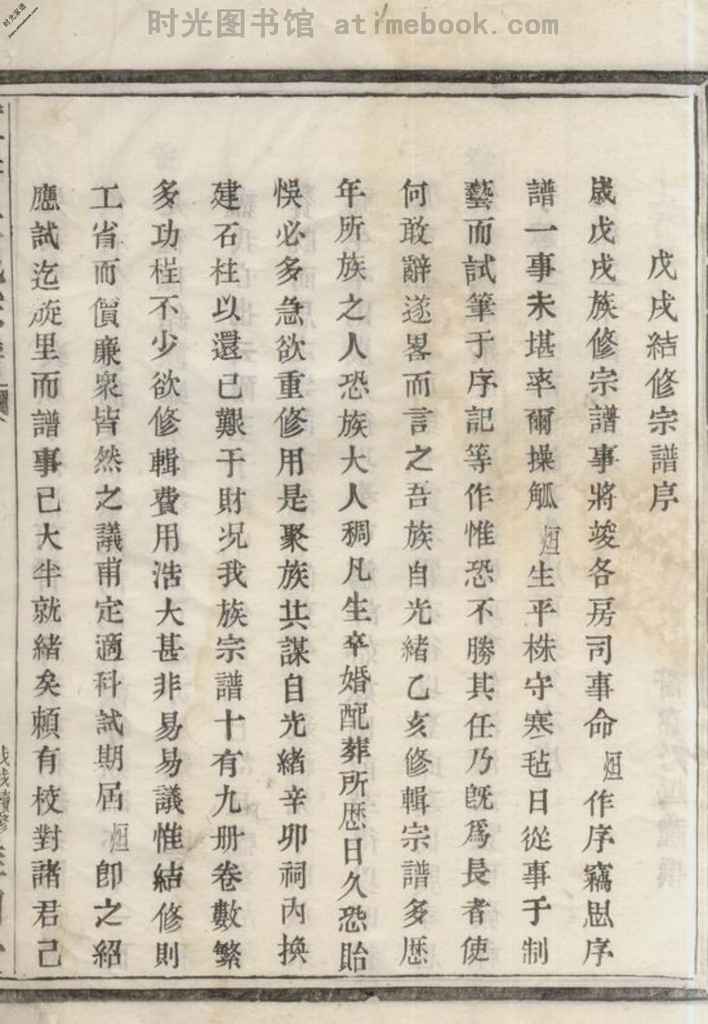 时光图书馆 atimebook.com
戊戌結修宗譜序
歲戊戌族修宗譜事將竣各房司事命烜作序竊思序
譜一事未堪率爾操觚烜生平株守寒毡日從事于制
藝而試筆于序記等作惟恐不勝其任乃旣爲長者使
何敢辭遂畧而言之吾族自光緒乙亥修輯宗譜多歷
年所族之人恐族大人稠凡生卒婚配葬所歷日久恐貽
悞必多急欲重修用是聚族共謀自光緒辛卯祠內換
建石柱以還已艱于財况我族宗譜十有九册卷數繁
多功程不少欲修輯費用浩大甚非易易議惟結修則
工省而價廉衆皆然之議甫定適科試期届烜卽之紹
應試迄旋里而譜事已大半就緒矣賴有校對諸君己